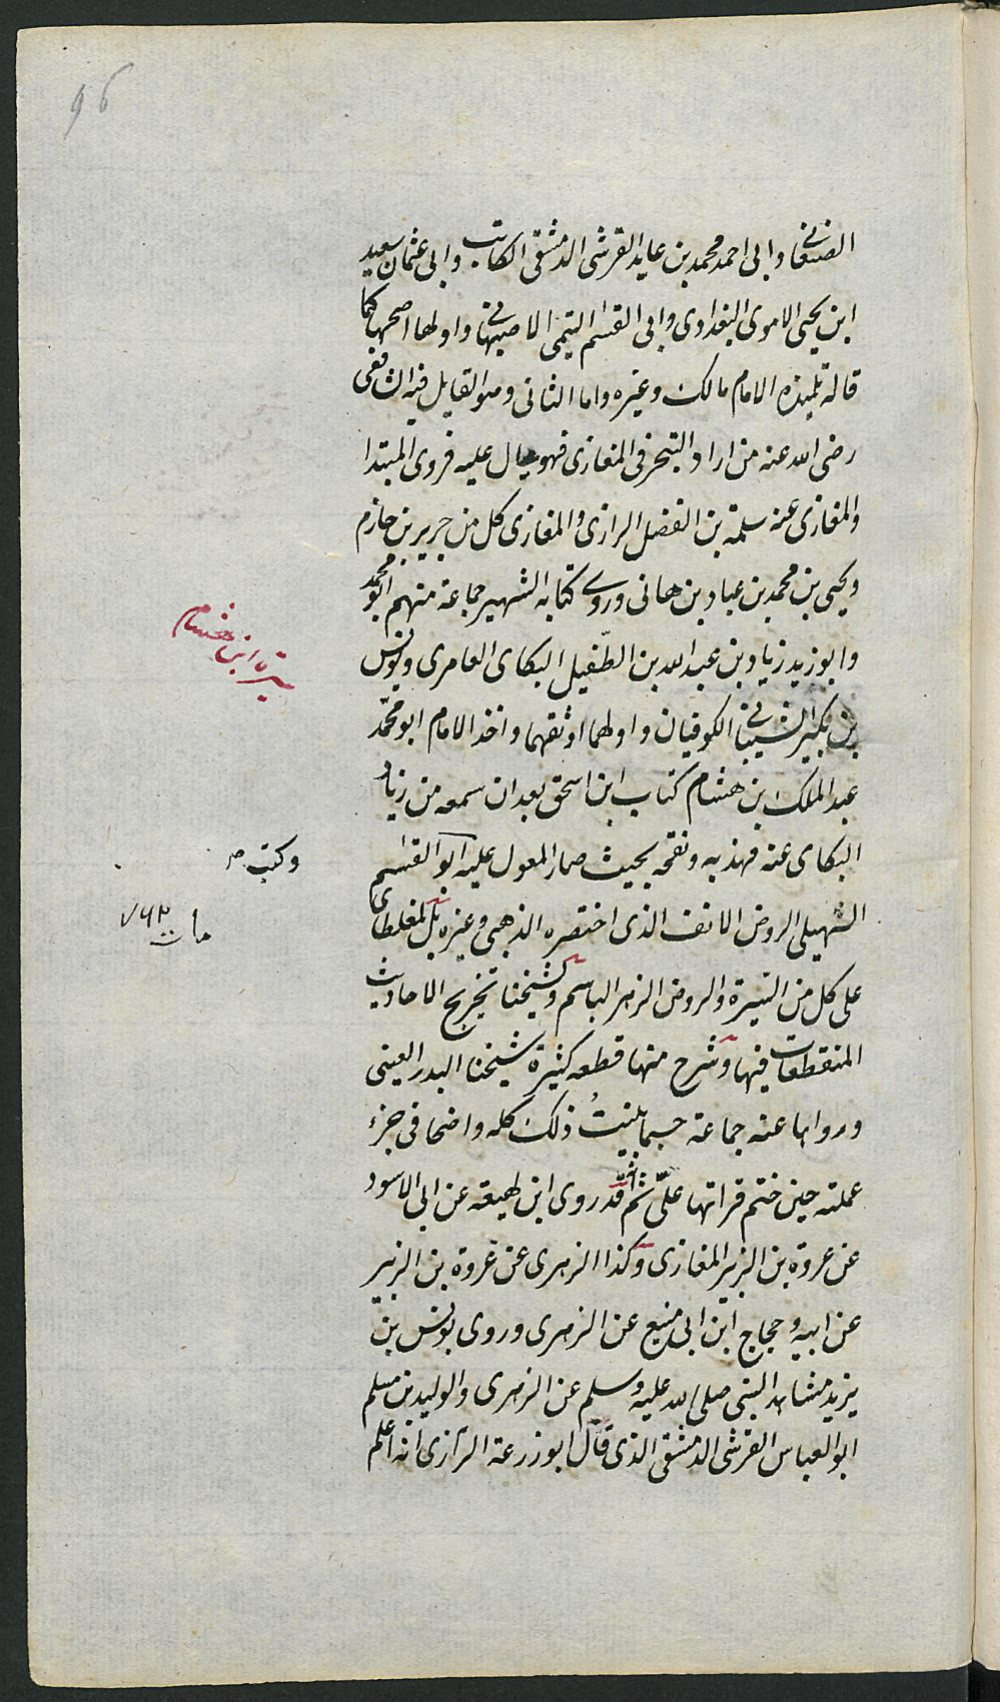 96
الصنعانى وابى احمد محمد بن عايد القرشى الدمشقى الكاتب وابى عثمان سعيد
ابن يحيى الاموى البغدادى وابى القسم التيمى الاصبهانى واولها اصحها كما
قاله تلميذه الامام مالك وغيره واما الثانى وهو القايل فيه الشافعى
رضى الله عنه من اراد التبحر فى المغازى فهو عيال عليه فروى المبتدا
والمغازى عنه سلمة بن الفضل الرازى والمغازى كل من جرير بن حازم
ويحيى بن محمد بن عباد بن هانى وروى كتابه الشهير جماعة منهم ابو محمد
وابو زيد زياد بن عبد الله بن الطفيل البكاى العامرى ويونس
سيرة ابن هشام
بن بكير الشيبانى الكوفيان واولهما اوثقهما واخذ الامام ابو محمد
عبد الملك بن هشام كتاب ابن اسحق بعد ان سمعه من زياد
البكاى عنه فهذبه ونقحه بحيث صار المعول عليه ابو القاسم
وكتب صح
السهيلى الروض الانف الذى اختصره الذهبى وغيره بل لمغلطاى
مات ٧٦٢
على كل من السيرة والروض الزهر الباسم ولشيخنا تخريج الاحاديث
المنقطعات فيها وشرح منها قطعه كثيرة شيخنا البدر العينى
ورواها عنه جماعة حسبما بينتُ ذلك كله واضحا فى جزء
عملته حين ختم قراتها علىّ ثم قد روى ابن لهيعة عن ابى الاسود
عن عروة بن الزبير المغازى وكذا الزهرى عن عروة بن الزبير
عن ابيه وحجاج ابن ابى منيع عن الزهرى وروى يونس بن
يزيد مشاهد النبى صلى الله عليه وسلم عن الزهرى والوليد بن مسلم
ابو العباس القرشى الدمشقى الذى قال ابو زرعة الرازى انه اعلم